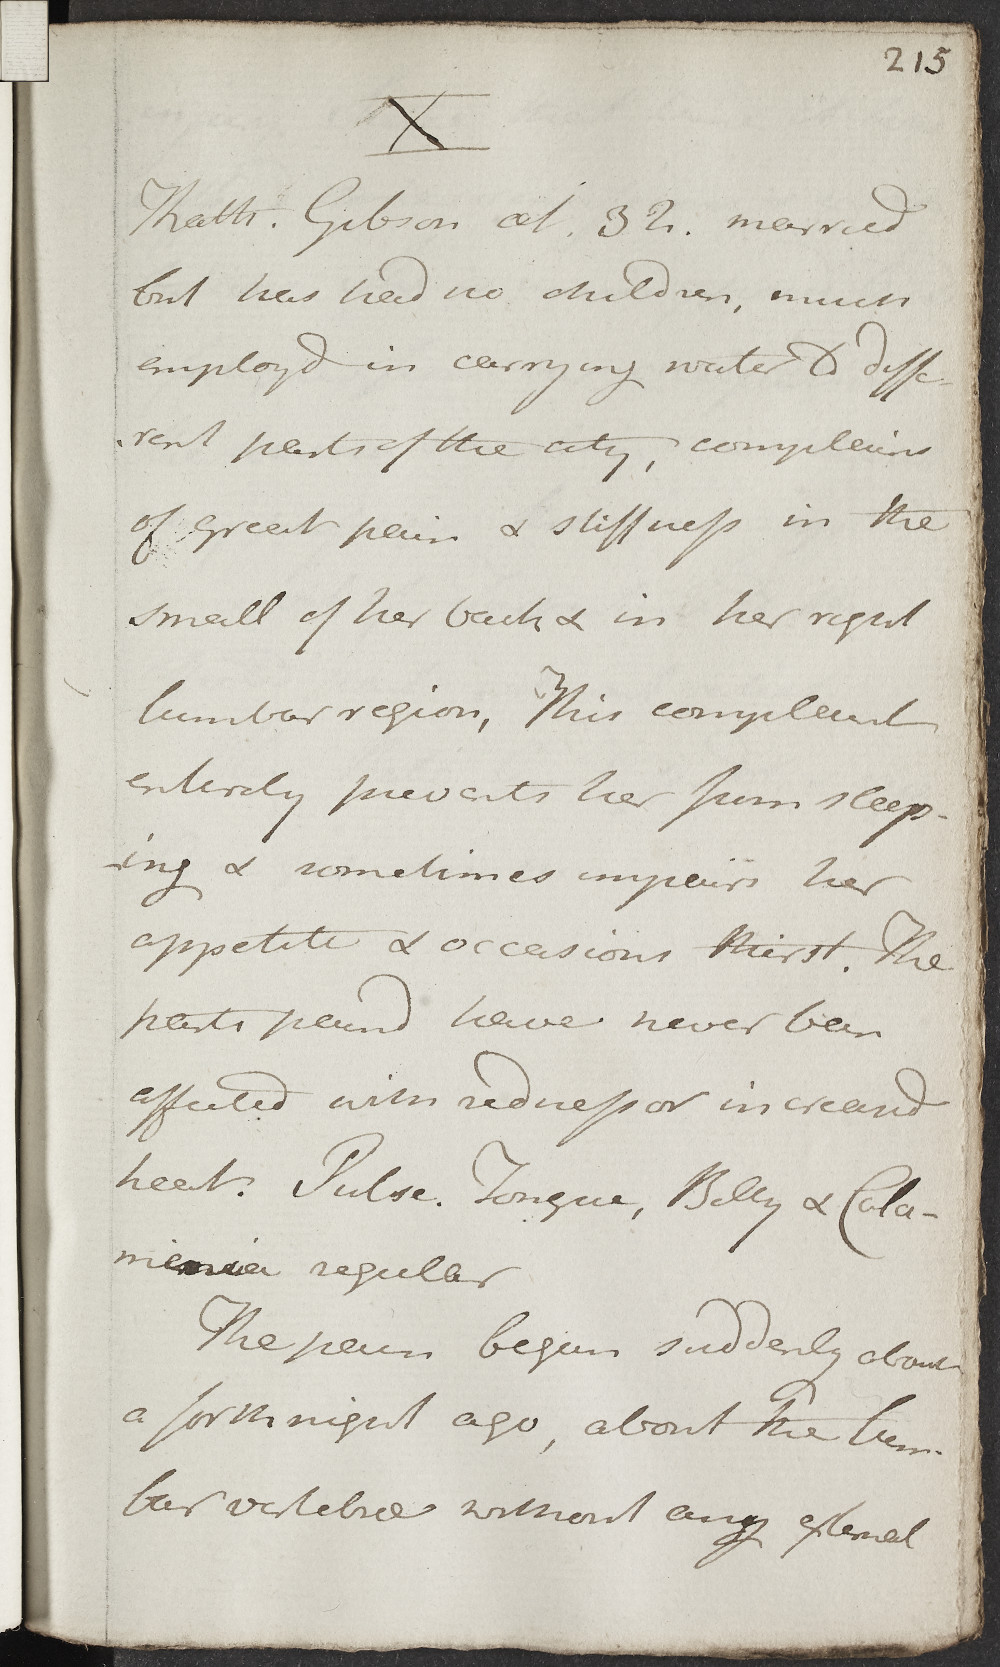 215
X
Kath. Gibson æt. 32. married
but has had no children, much
employd in carrying water to diffe-
-rent parts of the city, complains
of great pain & stiffness in the
small of her back & in her right
lumbar region, This complaint
entirely prevents her from sleep-
-ing & sometimes impairs her
appetite & occasions thirst. The
parts paind have never been
affected with redness or increasd
heat. Pulse. Tongue, Belly & Cata-
menia regular
The pain began suddenly about
a forthnight ago, about the lum-
bar vertebræ without any external